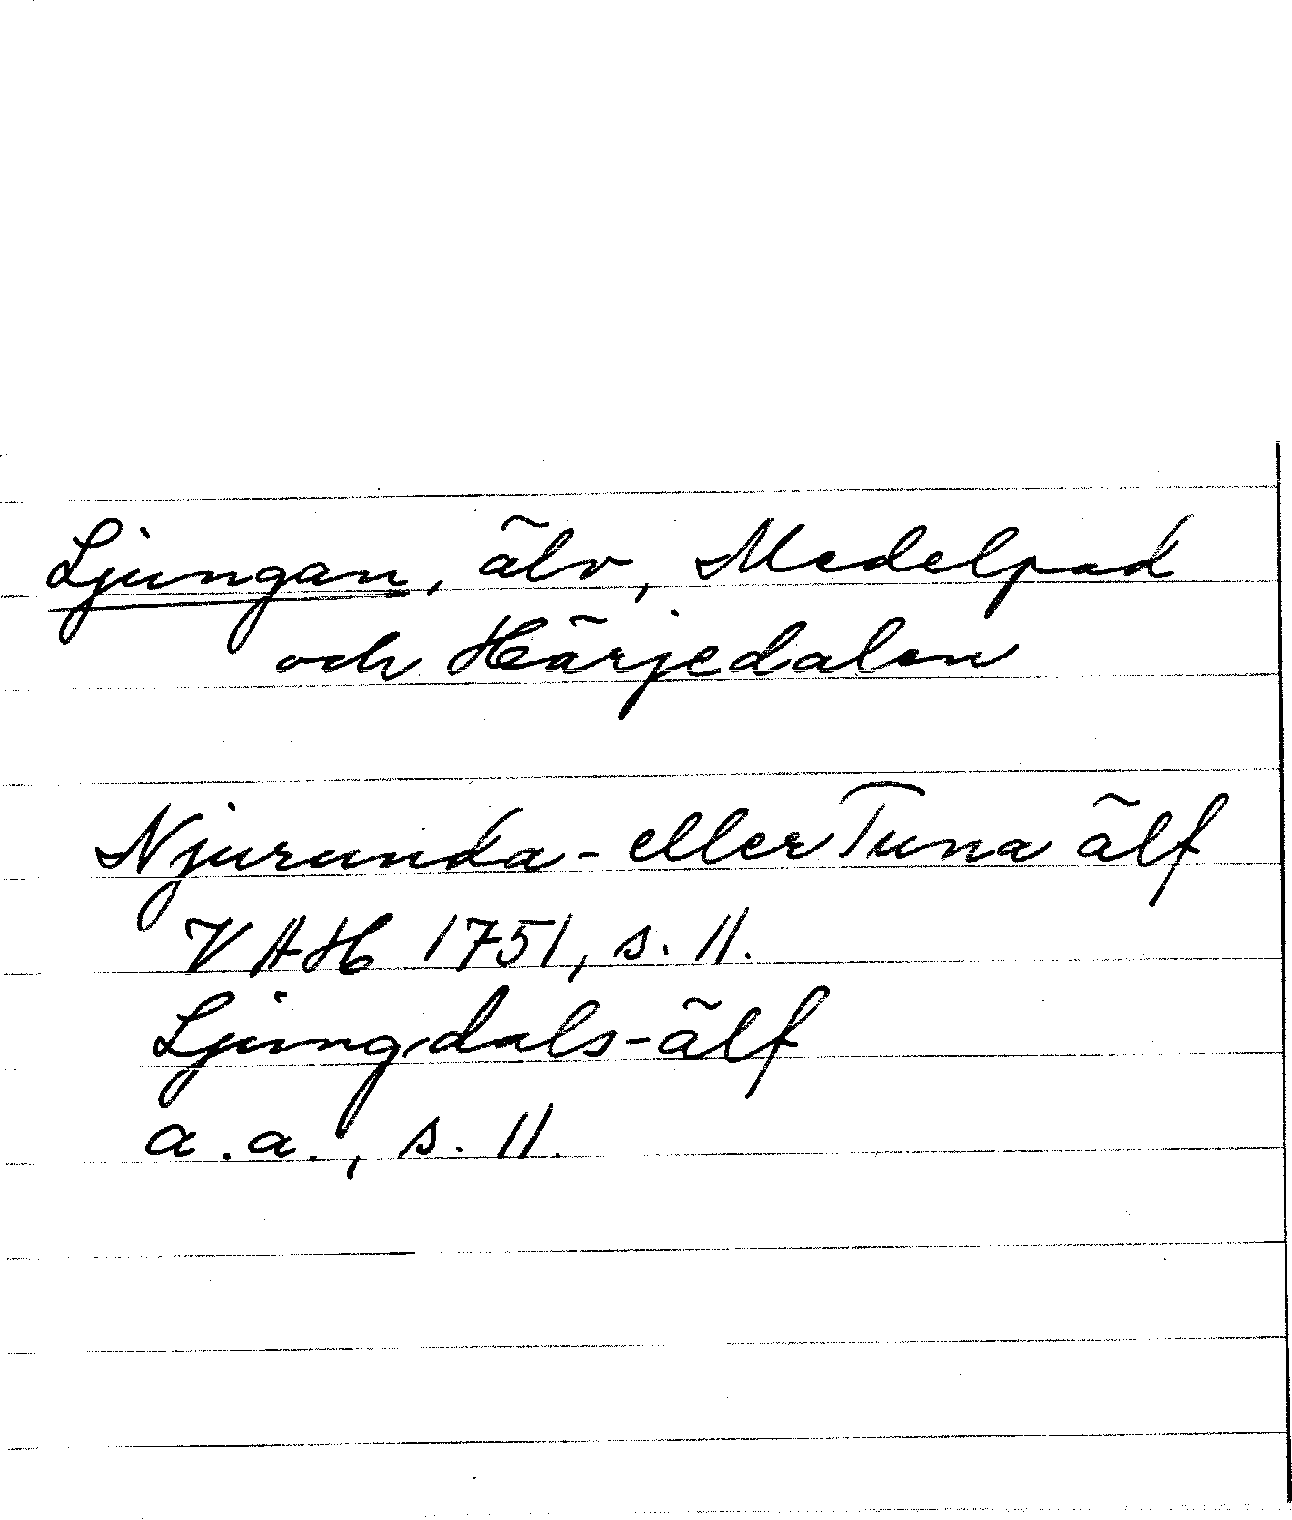 Ljungan, älv, Medelpad
och Härjedalen
Njurunda- eller Tuna älf
VAH 1751, s. 11.
Ljungdals-älf
a.a., s. 11.